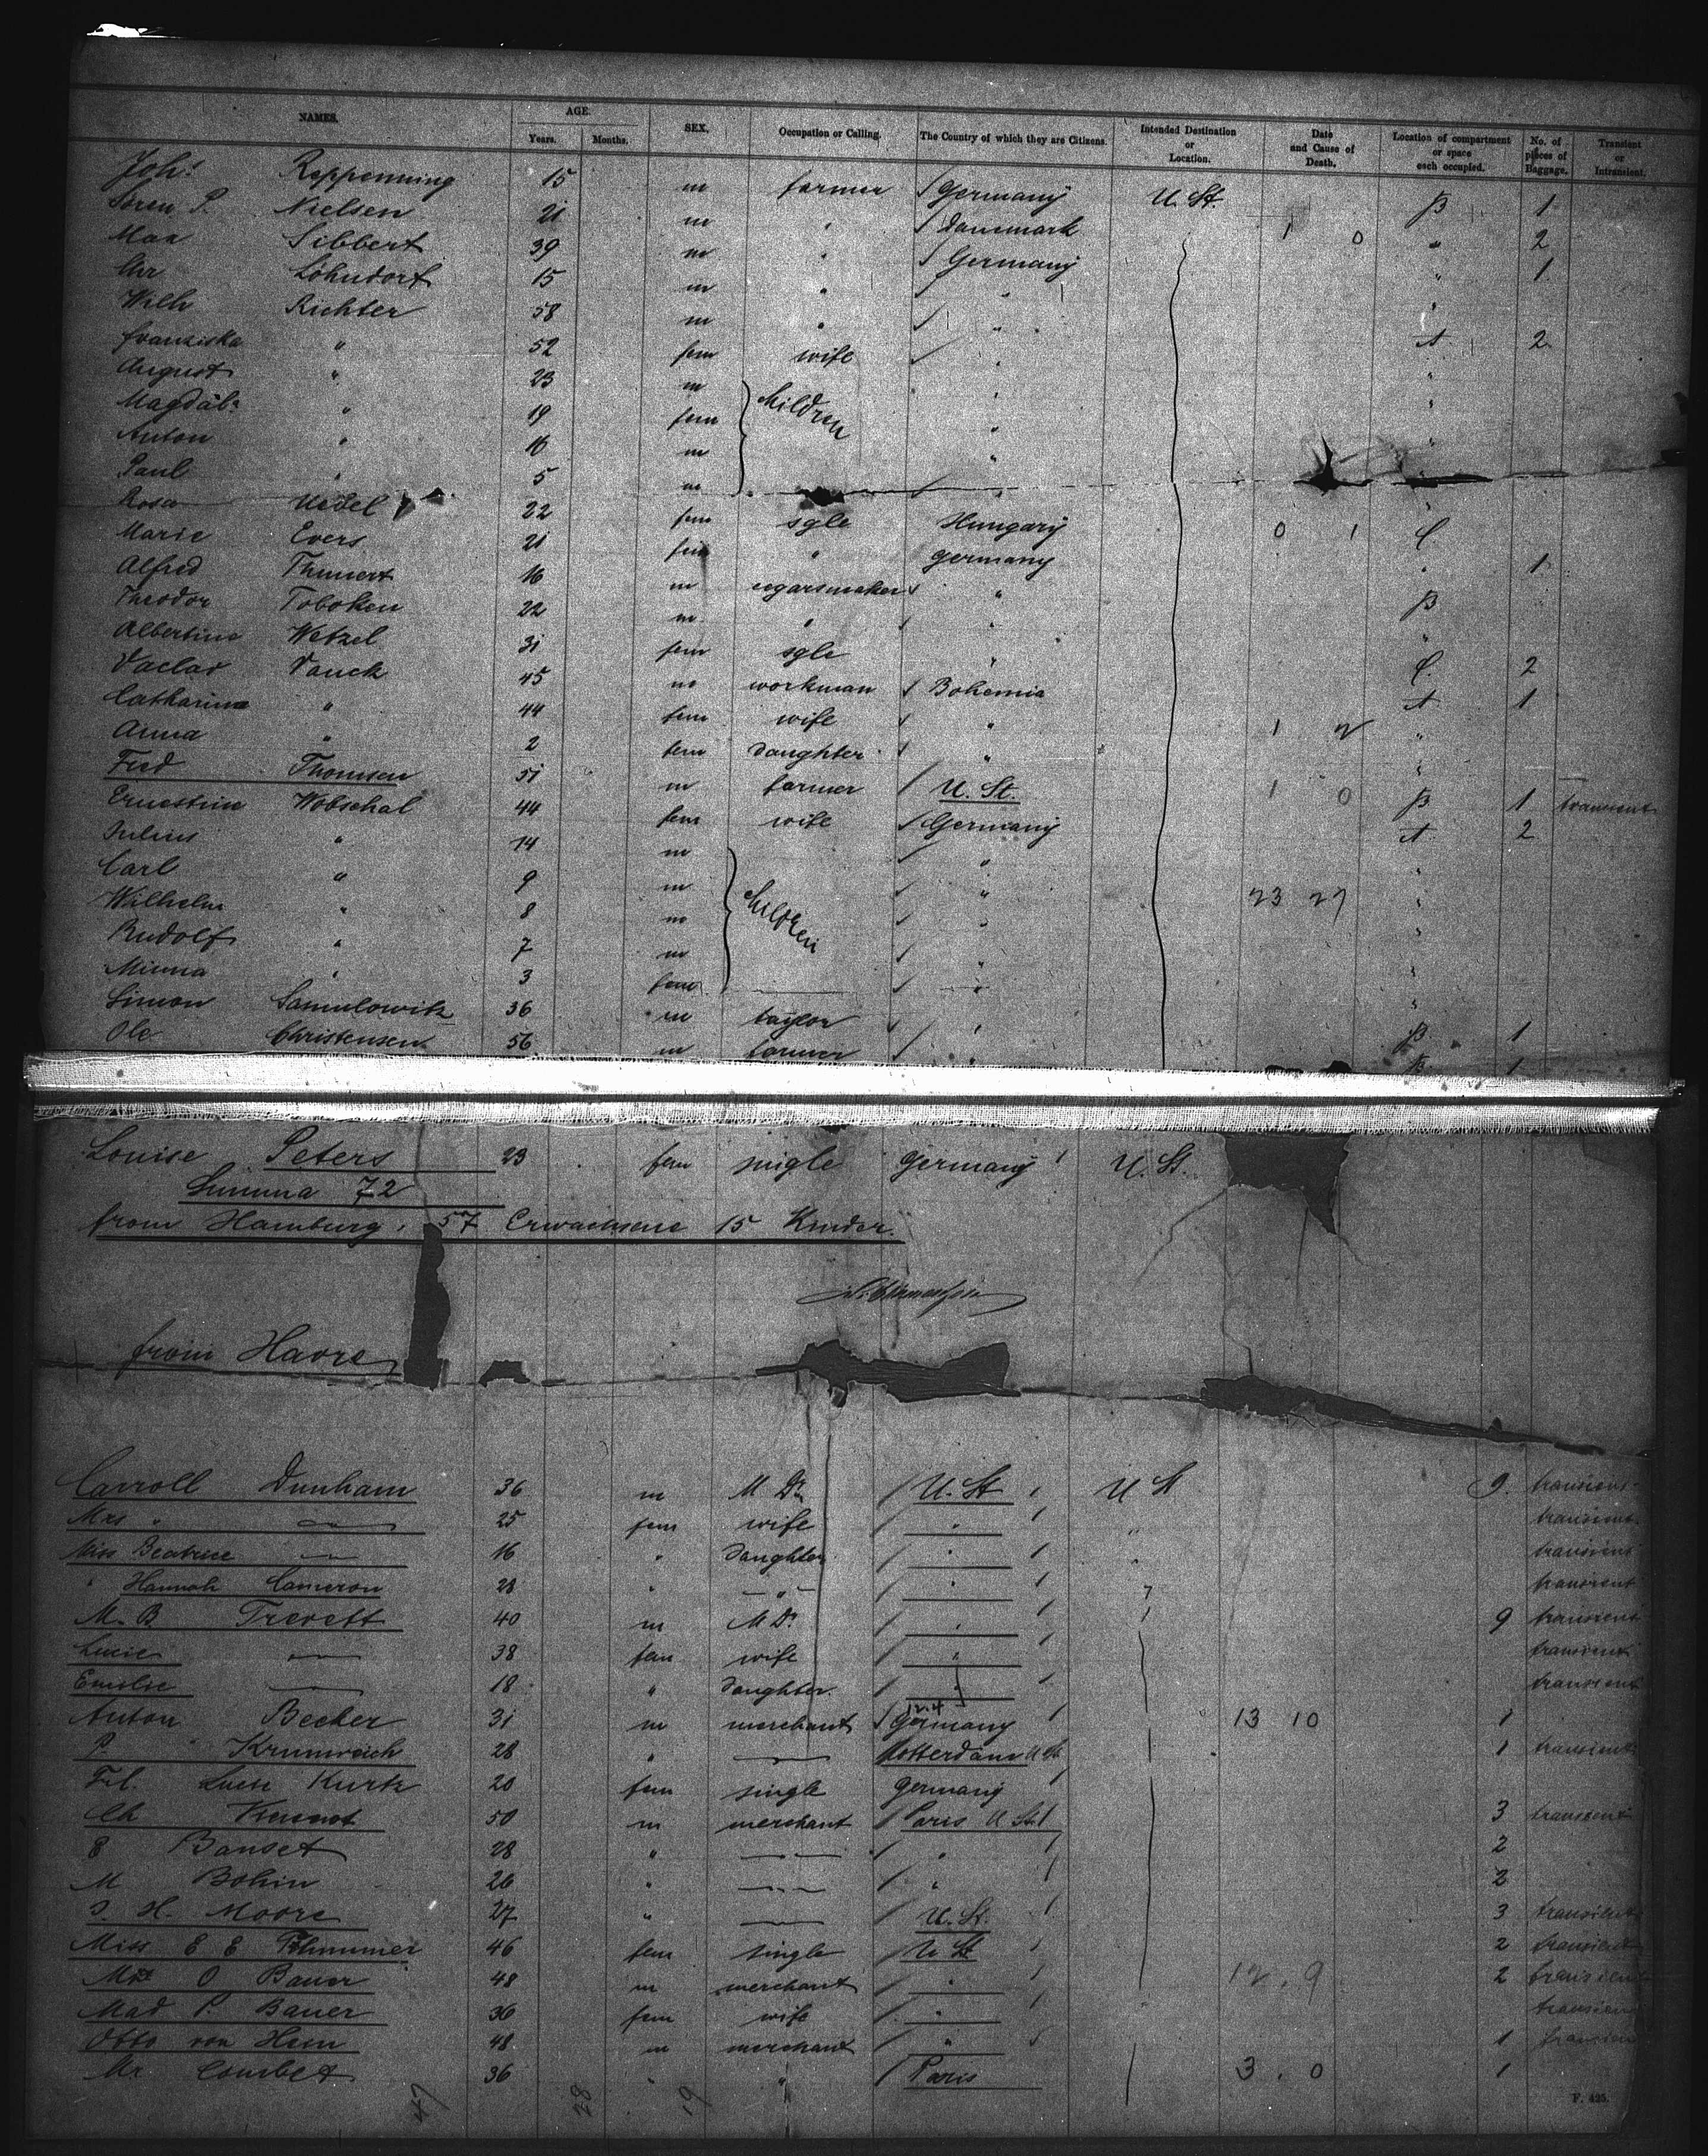 NAMES. AGE. Years. Months. SEX. Occupation or Calling. The Country of which they are Citizens. Intended Destination or Location. Date and Cause of Death. Location of compartment or space each occupied. No. of pieces of Baggage. Transient or Intransient.
Joh. Reppenning 15 m farmer Germany U. St. B 1
Sören P. Nielsen 21 m " Danemark 1 0 " 2
Max Sibbert 39 m " Germany " 1
Chr Lohndorf 15 m " " "
Wilh Richter 58 m " " A 2
Franziska " 52 fem wife " "
August " 23 m children " "
Magdal. " 19 fem " "
Anton " 16 m " "
Paul " 5 m "
Rosa 22 fem sgle Hungary 0 1 C
Marie Evers 21 fem " Germany " 1
Alfred Thunert 16 m cigarsmaker " B
Theodor Toboken 22 m " " "
Albertine Wetzel 31 fem sgle " C. 2
Vaclav Vanek 45 m workman Bohemia A 1
Catharina " 44 fem wife " 1 2 "
Anna " 2 fem daughter " "
Fred Thomsen 51 m farmer U. St. 1 0 B 1 transient
Ernestine Wobschal 44 fem wife Germany A 2
Julius " 14 m children " "
Carl " 9 m " 23 27 "
Wilhelm " 8 m "
Rudolf " 7 m " "
Minna " 3 fem " "
Simon Samulowitz 36 m taylor " B 1
Ole Christensen 56 m farmer " B 1
Louise Peters 23 fem single Germany U. St.
Summa 72
from Hamburg, 57 Erwachsene 15 Kinder.
from Havre
Carroll Dunham 36 m M Dr U. St U St 9. transient
Mrs " 25 fem wife " " transient
Miss Beatrice 16 " daughter " " transient
" Hannah Cameron 28 " " " transient
M. B. Trevett 40 m M Dr " 9 transient
Lucie 38 fem wife " transient
Emilie 18 " daughter transient
Anton Becker 31 m merchant Germany 13 10 1
P. Krumreich 28 " Rotterdam U St. 1 transient
Frl. Luise Kurtz 20 fem single Germany
Ch 50 m merchant Paris U St. 3 transient
E Banset 28 " " 2
M Bohin 26 " " 2
S. H. Moore 27 " U. St. 3 transient
Miss E E 46 fem single U St 2 transient
O Bauer 48 m merchant " 12. 9 2 transient
Mad P. Bauer 36 fem wife " transient
Otto von Hein 48 m merchant " 1 transient
Mr Combet 36 " " Paris 3. 0 1
47 28 19
F. 425.